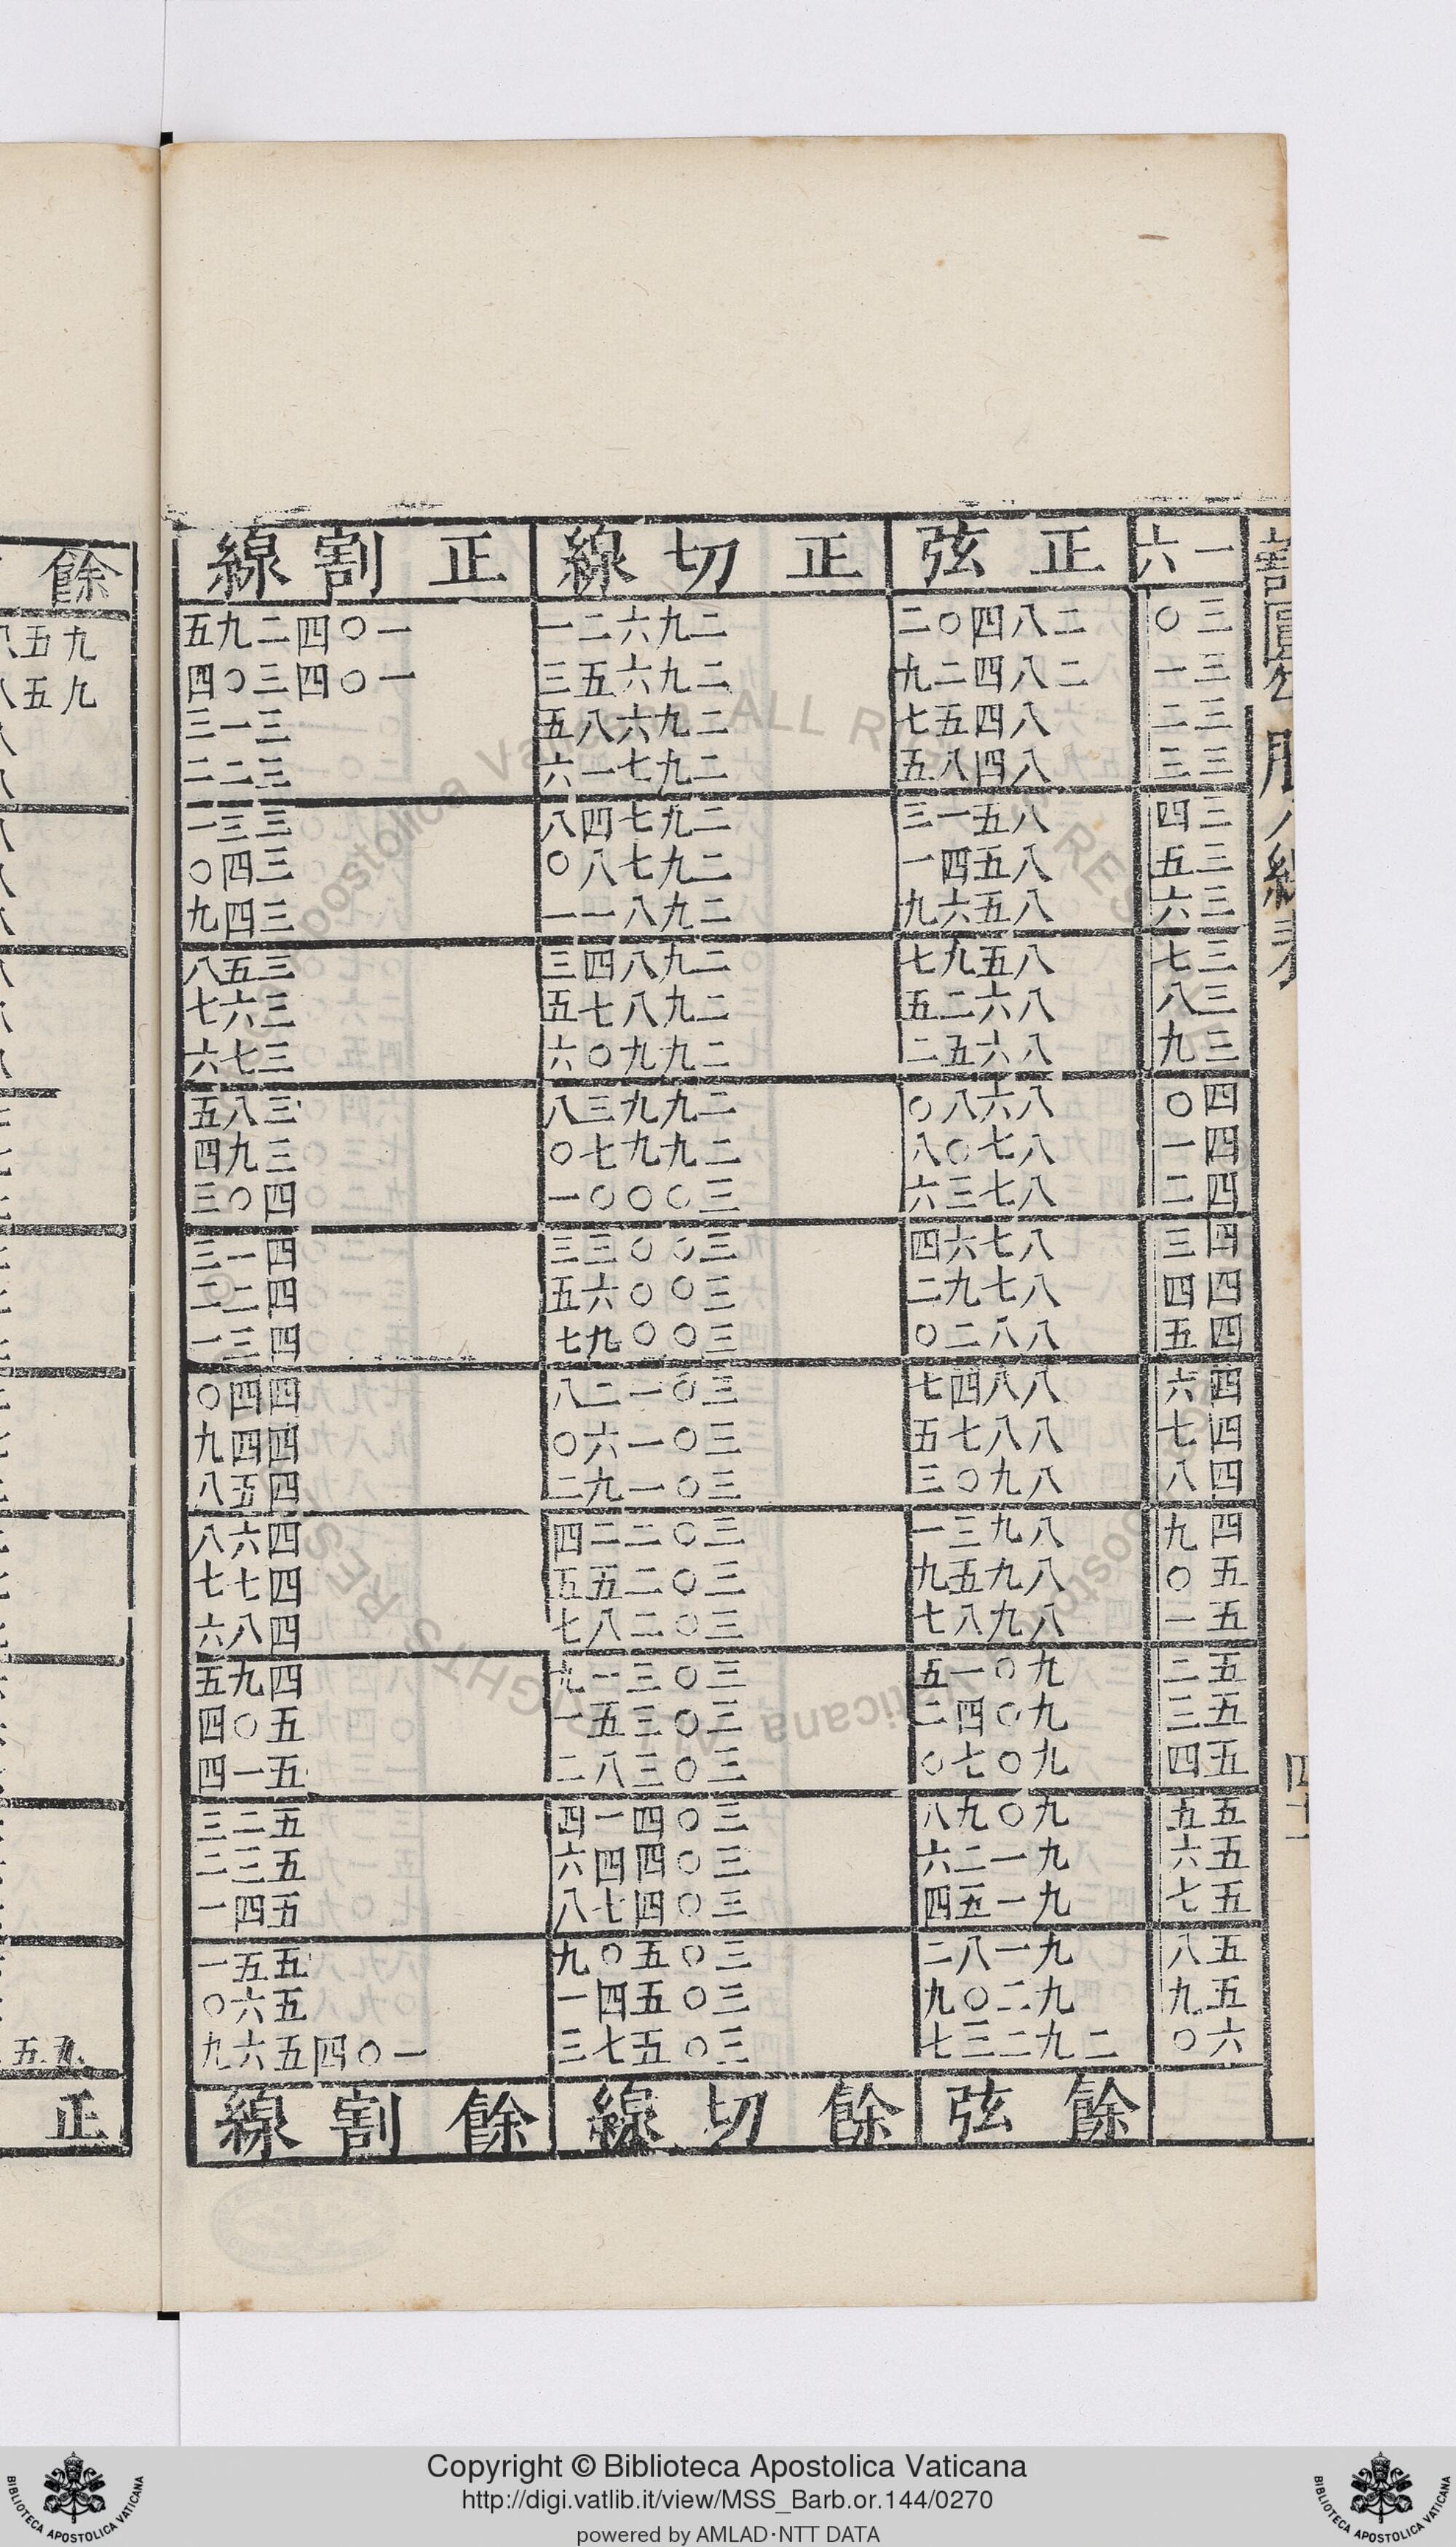 割圓
線表
四十一
一六 正弦 正切線 正割線
三〇 二八四〇二 二九六二一 一〇四二九五
三一 二八四二九 二九六五三 一〇四三〇四
三二 八四五七 二九六八五 三一三
三三 八四八五 二九七一六 三二二
三四 八五一三 二九七四八 三三一
三五 八五四一 二九七八〇 三四〇
三六 八五六九 二九八一一 三四九
三七 八五九七 二九八四三 三五八
三八 八六二五 二九八七五 三六七
三九 八六五二 二九九〇六 三七六
四〇 八六八〇 二九九三八 三八五
四一 八七〇八 二九九七〇 三九四
四二 八七三六 三〇〇〇一 四〇三
四三 八七六四 三〇〇三三 四一三
四四 八七九二 三〇〇六五 四二二
四五 八八二〇 三〇〇九七 四三一
四六 八八四七 三〇一二八 四四〇
四七 八八七五 三〇一六〇 四四九
四八 八九〇三 三〇一九二 四五八
四九 八九三一 三〇二二四 四六八
五〇 八九五九 三〇二五五 四七七
五一 八九八七 三〇二八七 四八六
五二 九〇一五 三〇三一九 四九五
五三 九〇四二 三〇三五一 五〇四
五四 九〇七〇 三〇三八二 五一四
五五 九〇九八 三〇四一四 五二三
五六 九一二六 三〇四四六 五三二
五七 九一五四 三〇四七八 五四一
五八 九一八二 三〇五〇九 五五一
五九 九二〇九 三〇五四一 五六〇
六〇 二九二三七 三〇五七三 一〇四五六九
餘弦 餘切線 餘割線
餘
九五
九五八
九五
正
Copyright © Biblioteca Apostolica Vaticana
http://digi.vatlib.it/view/MSS_Barb.or.144/0270
powered by AMLAD·NTT DATA
BIBLIOTECA APOSTOLICA VATICANA
BIBLIOTECA APOSTOLICA VATICANA